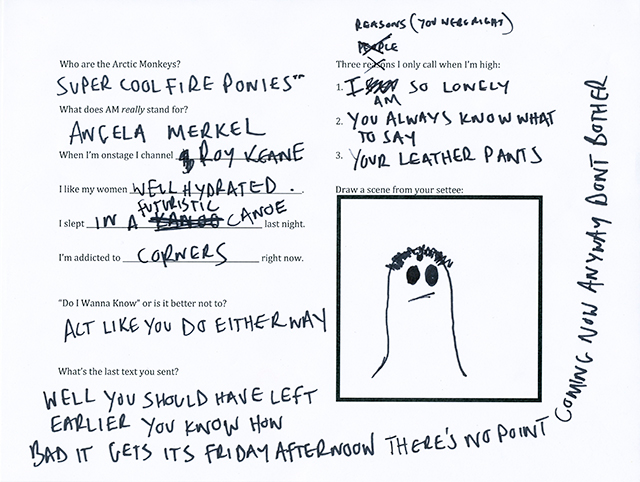 Who are the Arctic Monkeys?
SUPER COOL FIRE PONIES™
What does AM really stand for?
ANGELA MERKEL
When I'm onstage I channel ROY KEANE
I like my women WELL HYDRATED.
FUTURISTIC
I slept IN A CANOE last night.
I'm addicted to CORNERS right now.
"Do I Wanna Know" or is it better not to?
ACT LIKE YOU DO EITHER WAY
What's the last text you sent?
WELL YOU SHOULD HAVE LEFT
EARLIER YOU KNOW HOW
BAD IT GETS ITS FRIDAY AFTERNOON THERE'S NO POINT
COMING NOW ANYWAY DONT BOTHER
REASONS (YOU WERE RIGHT)
PEOPLE
Three reasons I only call when I'm high:
1. I SO LONELY
AM
2. YOU ALWAYS KNOW WHAT
TO SAY
3. YOUR LEATHER PANTS
Draw a scene from your settee: